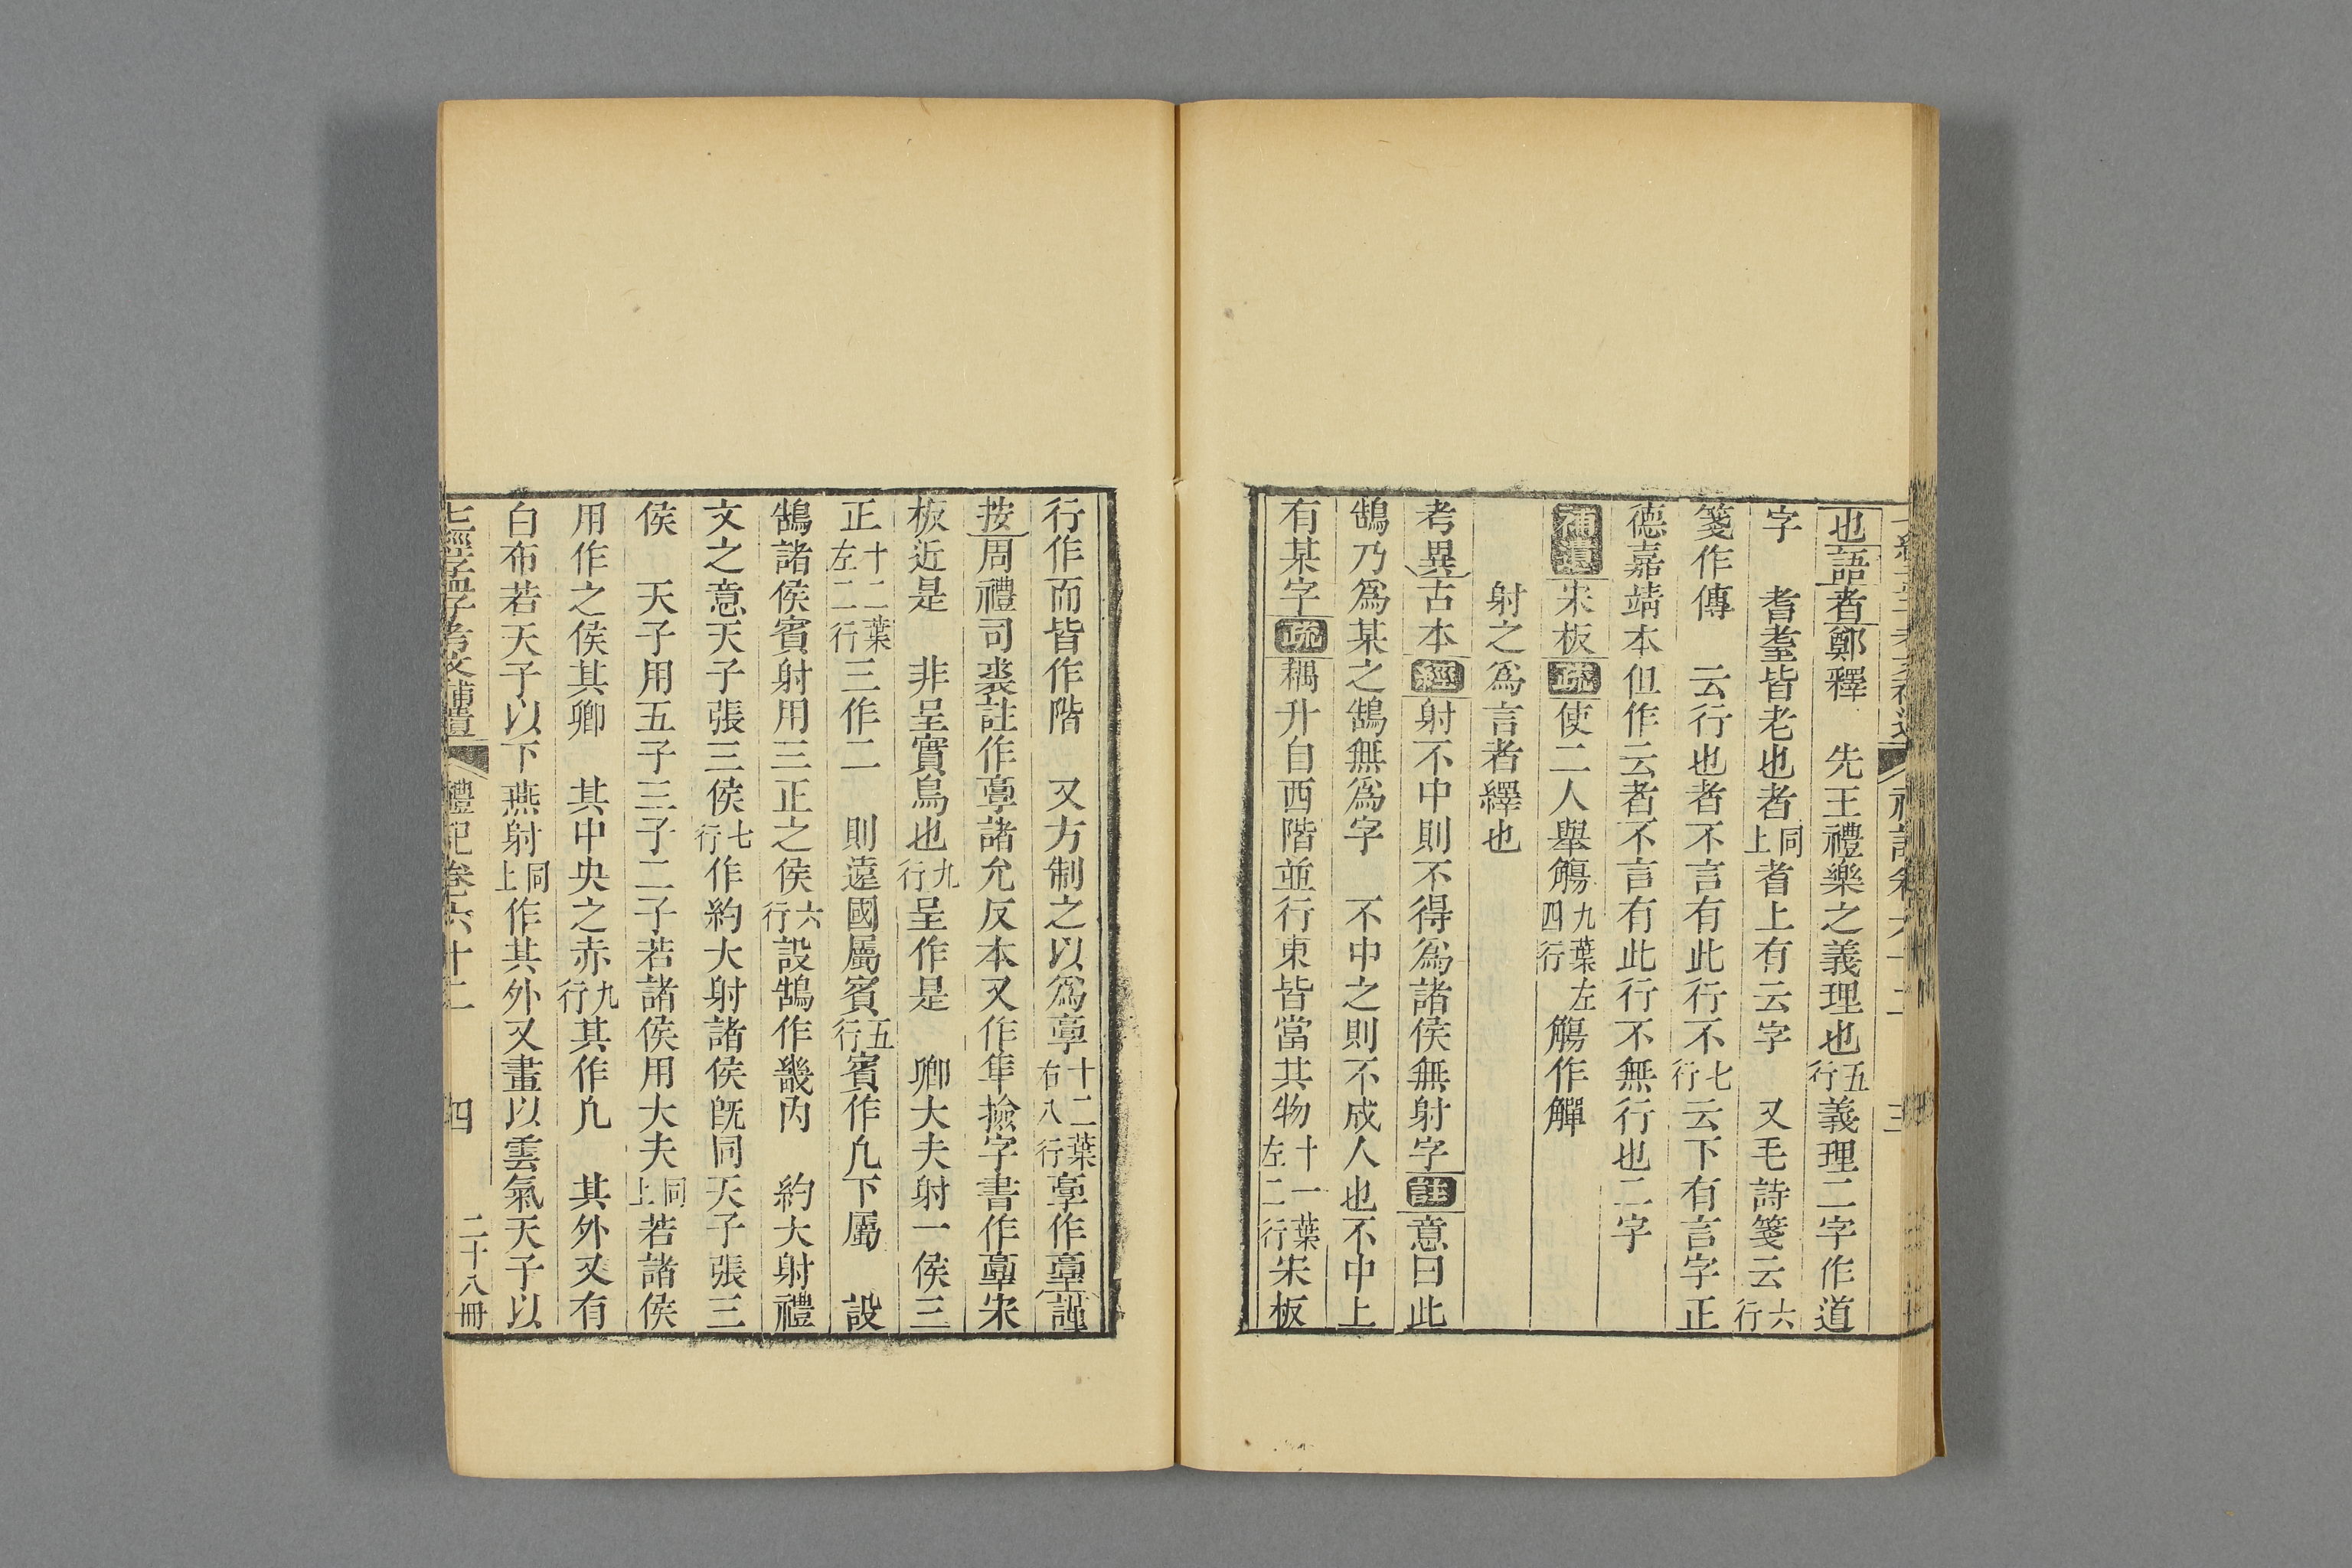 也語者鄭釋　先王禮樂之義理也五行義理二字作道
字　耆耋皆老也者同上者上有云字　又毛詩箋云六行
箋作傳　云行也者不言有此行不七行云下有言字正
德嘉靖本但作云者不言有此行不無行也二字
補遺宋板疏使二人舉觴九葉左四行觴作觶
射之爲言者繹也
考異古本經射不中則不得爲諸侯無射字註意曰此
鵠乃爲某之鵠無爲字　不中之則不成人也不中上
有某字疏耦升自西階並行東皆當其物十一葉左二行宋板
行作而皆作階　又方制之以爲𦎧十二葉右八行𦎧作𦎫謹
按周禮司裘註作𦎧諸允反本又作準撿字書作𦎫宋
板近是　非呈實鳥也九行呈作是　卿大夫射一侯三
正十二葉左二行三作二　則遠國屬賓五行賓作凡下屬　設
鵠諸侯賓射用三正之侯六行設鵠作畿内　約大射禮
文之意天子張三侯七行作約大射諸侯旣同天子張三
侯　天子用五子三子二子若諸侯用大夫同上若諸侯
用作之侯其卿　其中央之赤九行其作凡　其外又有
白布若天子以下燕射同上作其外又畫以雲氣天子以
七經孟子考文補遺　禮記卷六十二　四　二十八冊